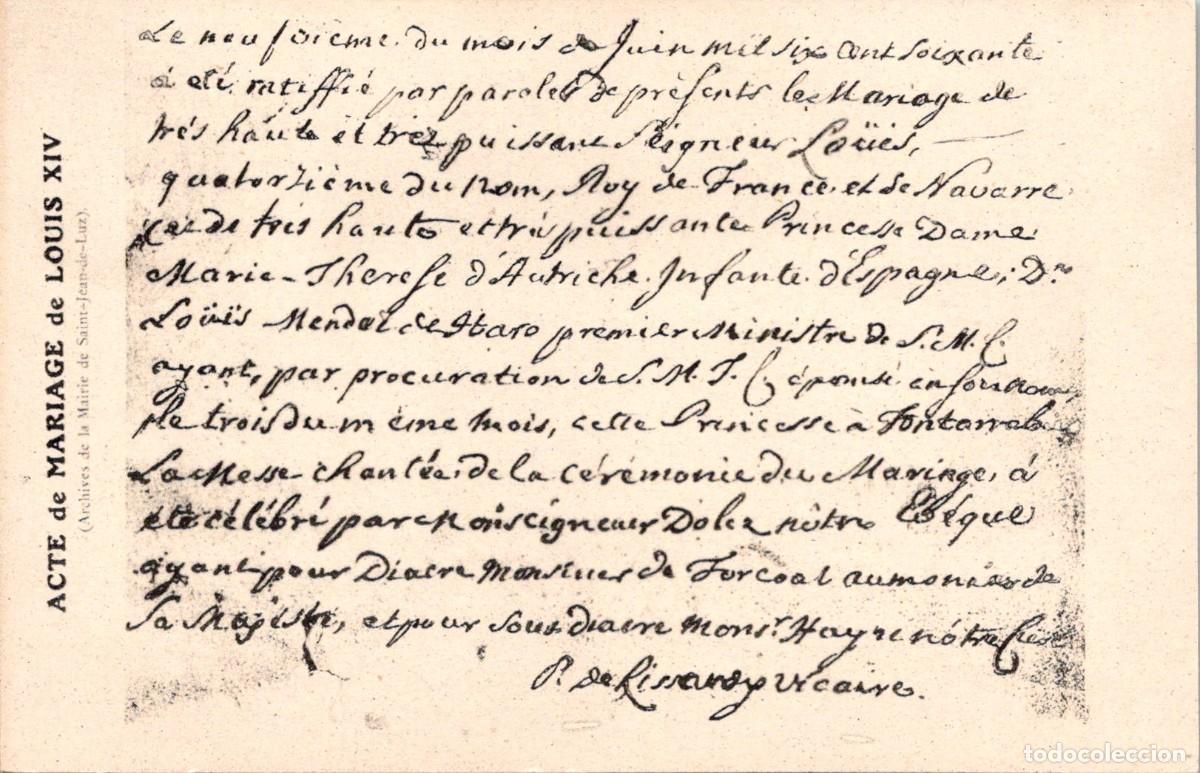 ACTE de MARIAGE de LOUIS XIV
(Archives de la Mairie de Saint-Jean-de-Luz)
Le neufoieme du mois de Juin mil six cent soixante
á eté ratiffié par paroles de présents le Mariage de
trés haute et trez puissant Seigneur Loüies,
quatorziéme du nom, Roy de France et de Navarre
de tres haute et trés puissante Princesse Dame
Marie-Therese d'Autriche Infante d'Espagne; Dn
Loüis Mendez de Haro premier Ministre de S. M. C.
ayant, par procuration de S. M. T. C. épousé en son nom,
le trois du méme mois, cette Princesse à Fontarrabie
La Messe chantée, de la cérémonie du Mariage, á
été célébré par Monseigneur Dolce nôtre Evéque
ayant pour Diacre Monsieur de Forcoal aumonier de
Sa Majesté, et pour Sous-diacre Monsr. Haynenótre
P. de Lissardy vicaire.
todocoleccion